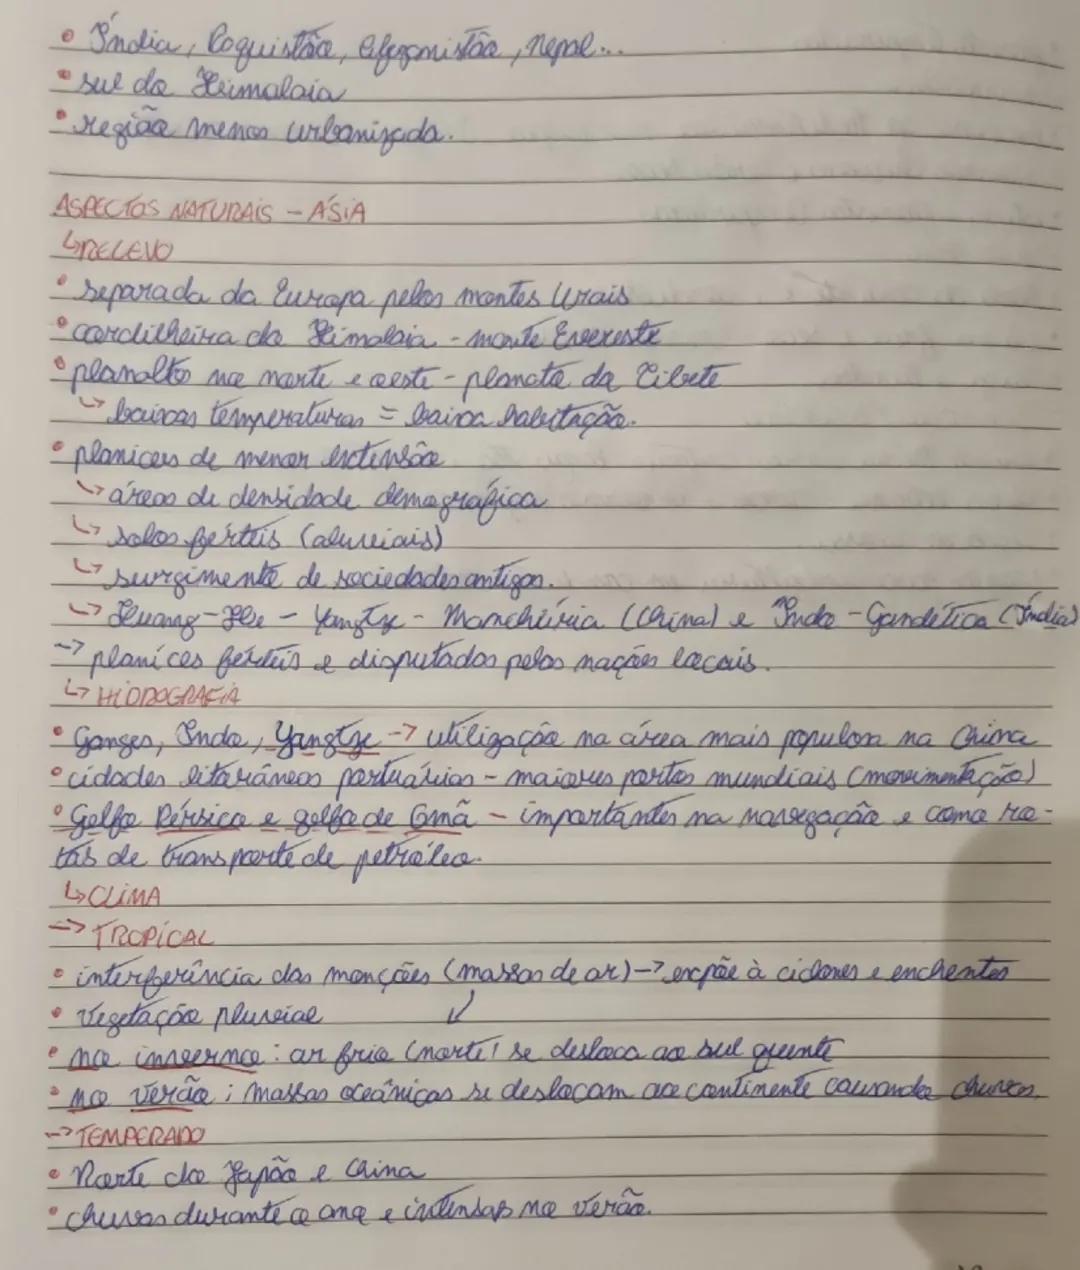 • Índia, Paquistão, Afeganistão, Nepal...
• sul do Himalaia
• região menos urbanizada.
ASPECTOS NATURAIS - ÁSIA
↳ RELEVO
• separada da Europa pelos montes Urais
• cordilheira do Himalaia - monte Evereste
• planalto no norte e oeste - planato do Tibete
↳ baixas temperaturas = baixa habitação.
• planíces de menor extensão
↳ áreas de densidade demográfica
↳ solos férteis (aluviais)
↳ surgimento de sociedades antigas.
↳ Huang-He - Yangtze - Manchúria (China) e Indo-Gandética (Índia)
-> planíces férteis e disputados pelas nações locais.
↳ HIDROGRAFIA
• Ganges, Indo, Yangtze -> utilização na área mais populosa na China
• cidades litorâneas portuárias - maiores portos mundiais (movimentação)
• Golfo Pérsico e golfo de Omã - importantes na navegação e como ro-
tas de transporte de petróleo.
↳ CLIMA
-> TROPICAL
• interferência das monções (massas de ar) -> expõe à ciclones e enchentes
• vegetação pluvial ↙
• no inverno: ar frio (norte) se desloca ao sul quente
• no verão: massas oceânicas se deslocam ao continente causando chuvas.
-> TEMPERADO
• Norte do Japão e China
• chuvas durante o ano e intensas no verão.